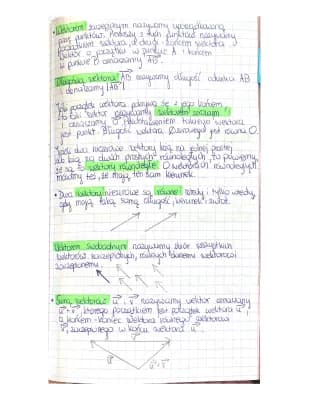 • Wektorem zaczepionym nazywamy uporządkowaną
parę punktów. Pierwszy z tych punktów nazywamy
początkiem wektora, a drugi - końcem wektora.
Wektor o początku w punkcie A i końcem
w punkcie B oznaczamy AB.
Długością wektora AB nazywamy długość odcinka AB
i oznaczamy |AB|
początek wektora pokrywa się z jego końcem
to taki wektor nazywamy wektorem zerowym
i oznaczamy 0. Przedstawieniem takiego wektora
jest punkt. Długość wektora zerowego jest równa 0.
dwa niezerowe wektory leżą na jednej prostej
lub leżą na dwóch prostych równoległych, to powiemy,
że są to wektory równoległe. O wektorach równoległych
mówimy też, że mają ten sam kierunek.
• Dwa wektory niezerowe są równe wtedy i tylko wtedy,
gdy mają taką samą długość, kierunek i zwrot.
Wektorem swobodnym nazywamy zbiór wszystkich
wektorów zaczepionych, równych danemu wektorowi
zaczepionemu.
• Sumą wektorów u, v nazywamy wektor oznaczany
u + v, którego początkiem jest początek wektora u,
a końcem - koniec wektora równego wektorowi
v, zaczepionego w końcu wektora u.
u
v
u + v